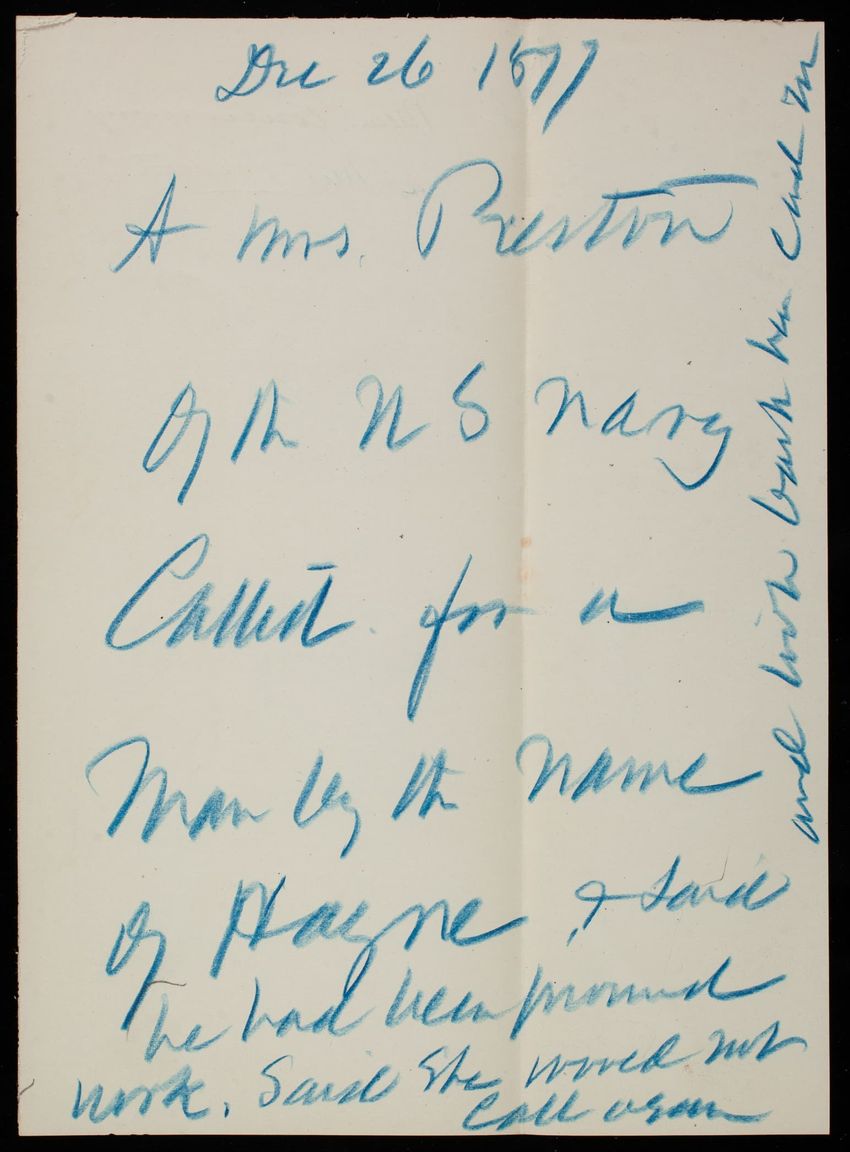 Dec 26 1877
A Mrs. Preston
of the U S Navy
Called for a
Man by the name
of Hayne, & Said
he had been promised
work. Said She would not
Call again
and took back her Card